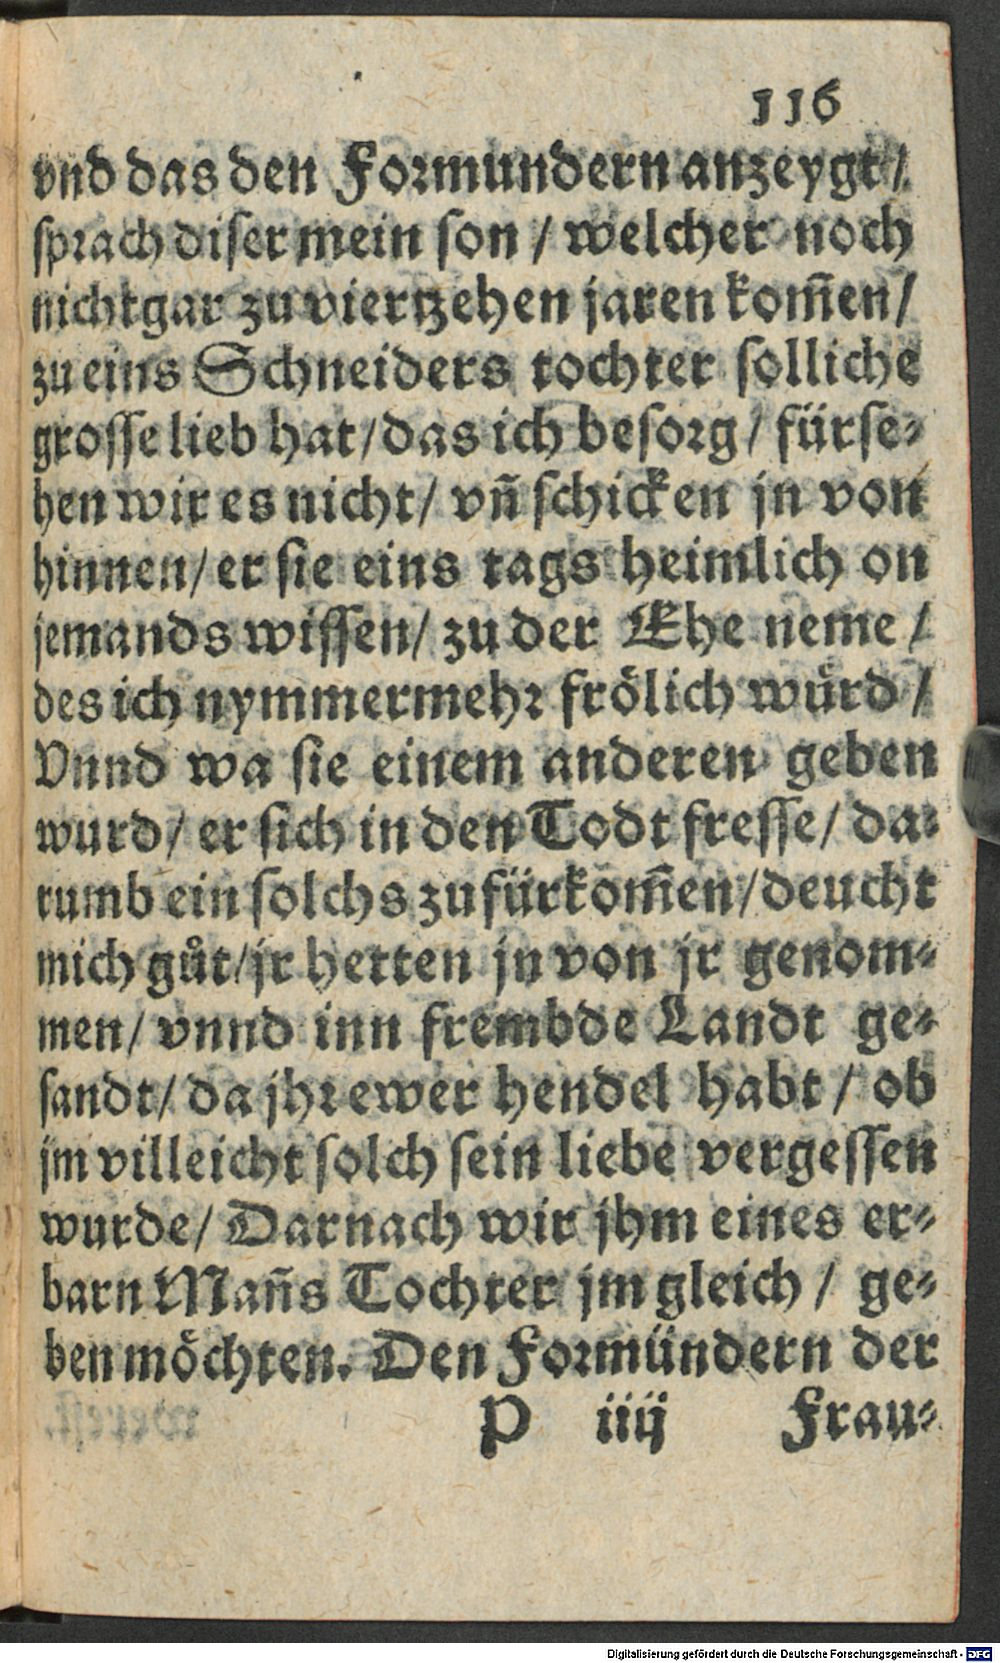 116
vnd das den Formundern anzeygt /
sprach diser mein son / welcher noch
nicht gar zu viertzehen jaren kom̄en /
zu eins Schneiders tochter solliche
grosse lieb hat / das ich besorg / fürse-
hen wir es nicht / vñ schicken jn von
hinnen / er sie eins tags heimlich on
jemands wissen / zu der Ehe neme /
des ich nymmermehr frölich würd /
Vnnd wa sie einem anderen geben
wurd / er sich in den Todt fresse / da-
rumb ein solchs zufürkom̄en / deucht
mich gůt / jr hetten jn von jr genom-
men / vnnd inn frembde Landt ge-
sandt / da jhr ewer hendel habt / ob
jm villeicht solch sein liebe vergessen
wurde / Darnach wir jhm eines er-
barn Mañs Tochter jm gleich / ge-
ben möchten. Den Formündern der
P iiij Frau-
Digitalisierung gefördert durch die Deutsche Forschungsgemeinschaft - DFG